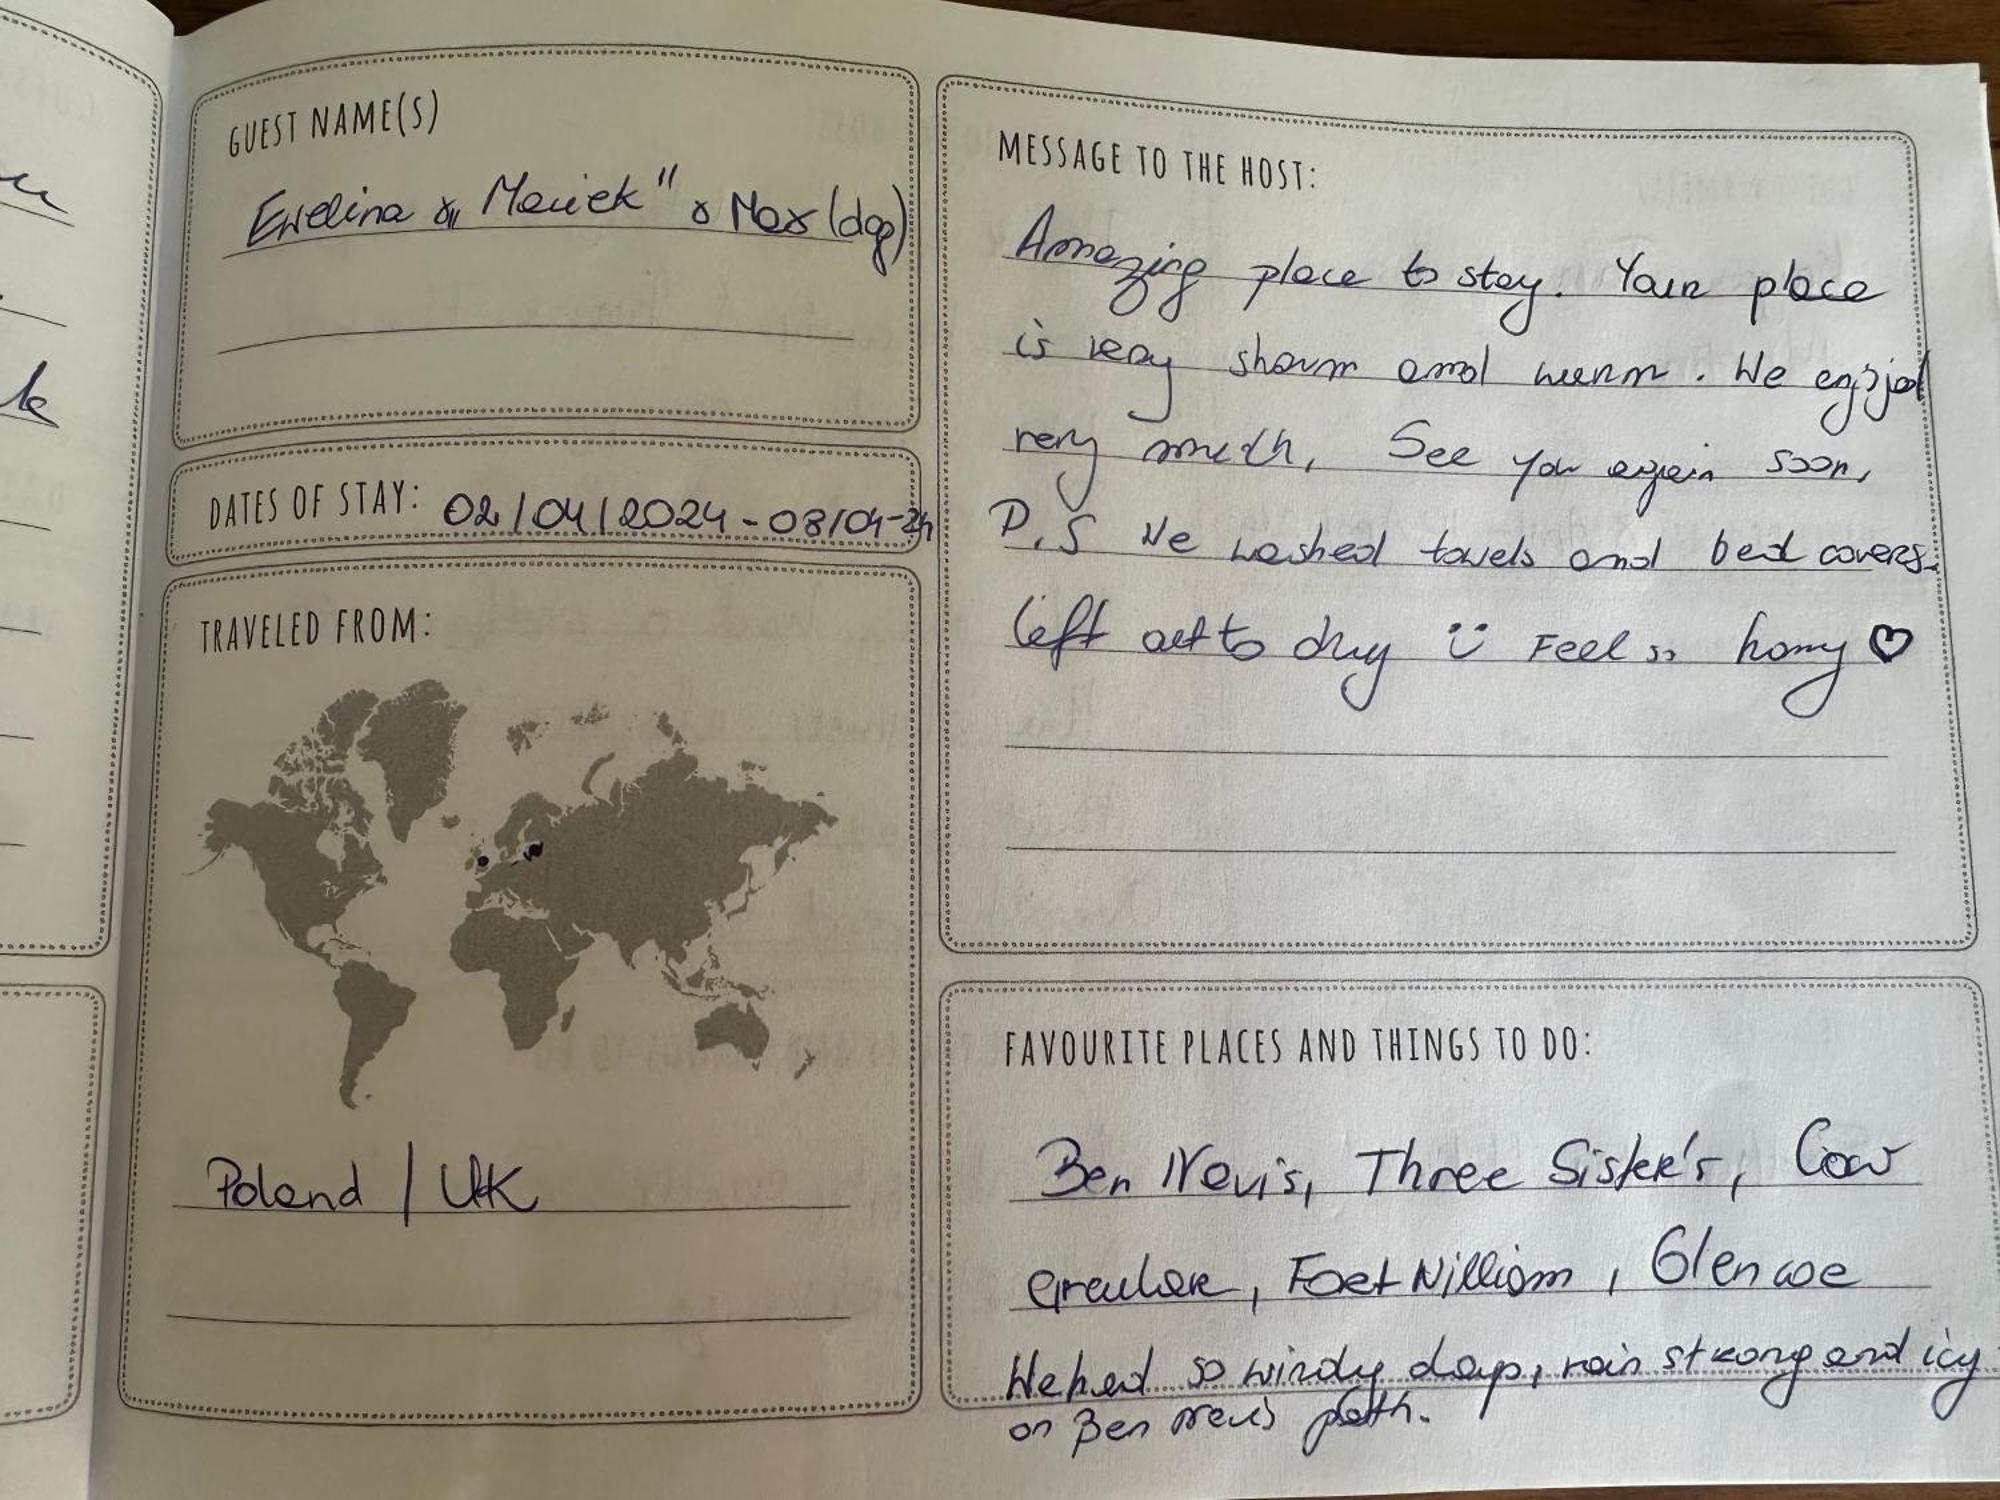 GUEST NAME(S)
Ewelina & „Maciek" & Max (dog)
DATES OF STAY: 02/04/2024 - 08/04-24
TRAVELED FROM:
Poland / UK
MESSAGE TO THE HOST:
Amazing place to stay. Your place
is very sharm and warm. We enjojed
very much, See you again soon,
P.S We washed towels and bed covers.
left out to dry ü Feel so homy ♡
FAVOURITE PLACES AND THINGS TO DO:
Ben Nevis, Three Sister's, Cow
, Fort William, Glencoe
We had so windy days, rain strong and icy
on Ben Nevis path.
k